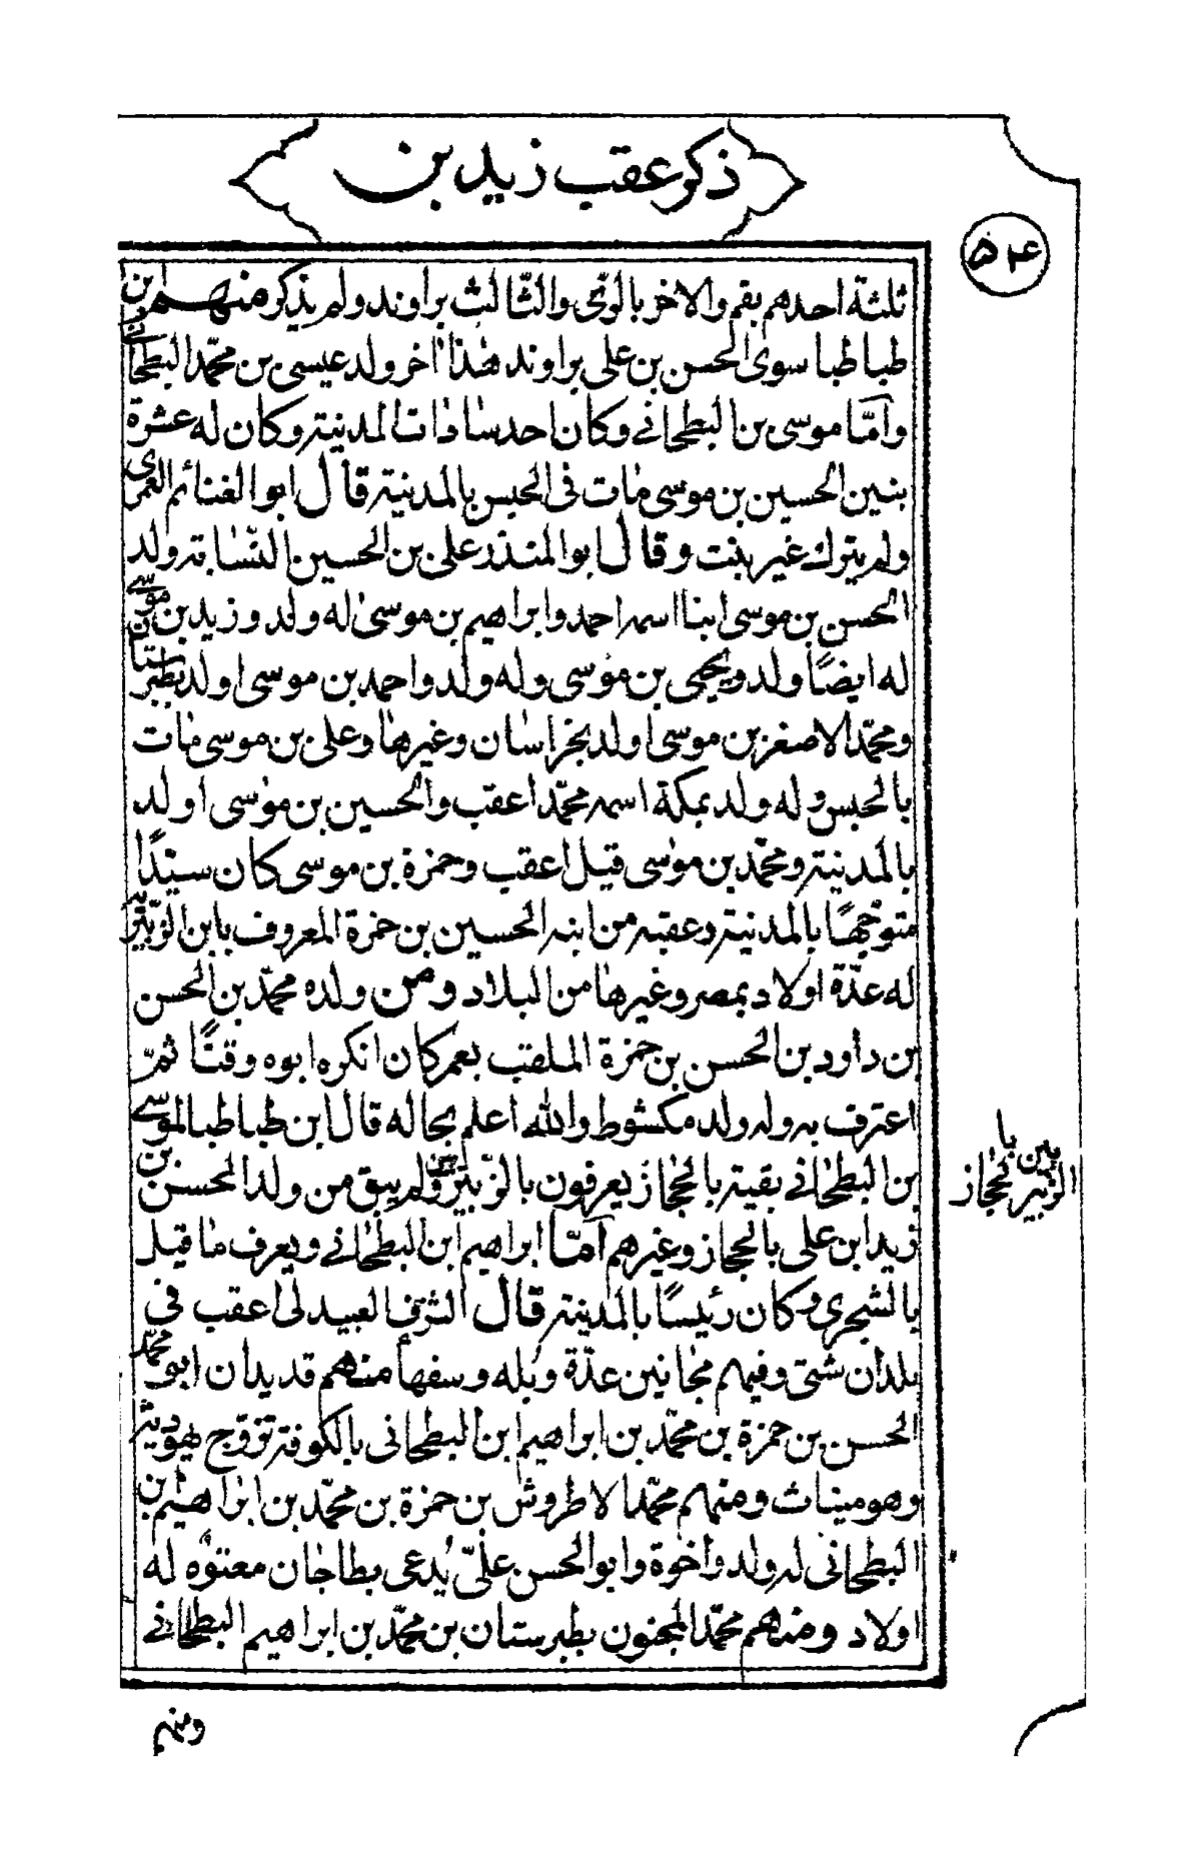 ذكر عقب زيد بن
٥٤
ثلثة احدهم بقم والاخر بالرى والثالث براوند ولم يذكر منهم ابن
طباطبا سوى الحسن بن على براوند هذا اخر ولد عيسى بن محمّد البطحانى
وامّا موسى بن البطحانے وكان احد سادات المدينة وكان له عشرة
بنين الحسين بن موسى مات فى الحبس بالمدينة قال ابو الغنائم العمرى
ولم يترك غير بنت وقال ابو المنذر على بن الحسين النسّابة ولد
الحسن بن موسى ابنا اسمه احمد وابراهيم بن موسىٰ له ولد وزيد بن موسے
له ايضًا ولد ويحيى بن موسى وله ولد واحمد بن موسى اولد بطبرستان
ومحمّد الاصغر بن موسى اولد بخراسان وغيرها وعلى بن موسى مات
بالحبس وله ولد بمكة اسمه محمّد اعقب والحسين بن موسى اولد
بالمدينة ومحمّد بن موسى قيل اعقب وحمزة بن موسى كان سيّدًا
متوجّهًا بالمدينة وعقبه من ابنه الحسين بن حمزة المعروف بابن الزبيريّة
له عدّة اولاد بمصر وغيرها من البلاد ومن ولده محمّد بن الحسن
بن داود بن الحسن بن حمزة الملقب بعمر كان انكره ابوه وقتًا ثمّ
اعترف به وله ولد مكشوط والله اعلم بحاله قال ابن طباطبا لموسے
بن البطحانے بقية بالحجاز يعرفون بالزّبيريّة ولم يبق من ولد الحسن بن
زيد ابن على بالحجاز وغيرهم امّا ابراهيم ابن البطحانے ويعرف ما قيل
بالشجرى وكان رئيسًا بالمدينة قال الشريف العبيدلى اعقب فى
بلدان شتى وفيهم مجانين عدّة وبله وسفهأ منهم قديدان ابو محمّد
الحسن بن حمزة بن محمّد بن ابراهيم ابن البطحانى بالكوفة تزوّج يهوديّة
وهو ميناث ومنهم محمّد الاطروش بن حمزة بن محمّد بن ابراهيم بن
البطحانى له ولد واخوة وابو الحسن علىّ يُدعى بطاجان معتوه له
اولاد ومنهم محمّد المجنون بطبرستان بن محمّد بن ابراهيم البطحانے
بالحجاز
ومنهم